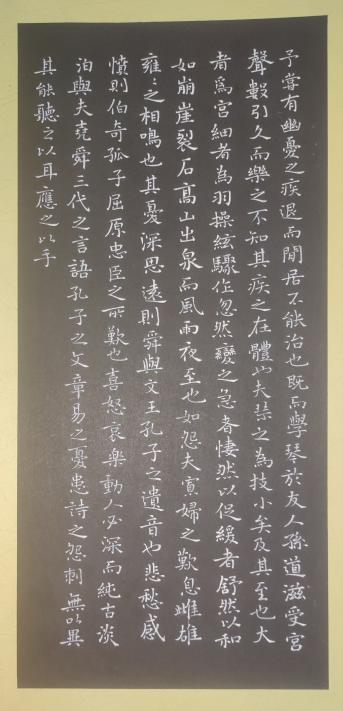 予嘗有幽憂之疾退而閒居不能治也既而學琴於友人孫道滋受宮
聲數引久而樂之不知其疾之在體也夫琴之為技小矣及其至也大
者為宮細者為羽操絃驟作忽然變之急者悽然以促緩者舒然以和
如崩崖裂石高山出泉而風雨夜至也如怨夫寡婦之歎息雌雄
雍〻之相鳴也其憂深思遠則舜與文王孔子之遺音也悲愁感
憤則伯奇孤子屈原忠臣之所歎也喜怒哀樂動人必深而純古淡
泊與夫堯舜三代之言語孔子之文章易之憂患詩之怨刺無以異
其能聽之以耳應之以手